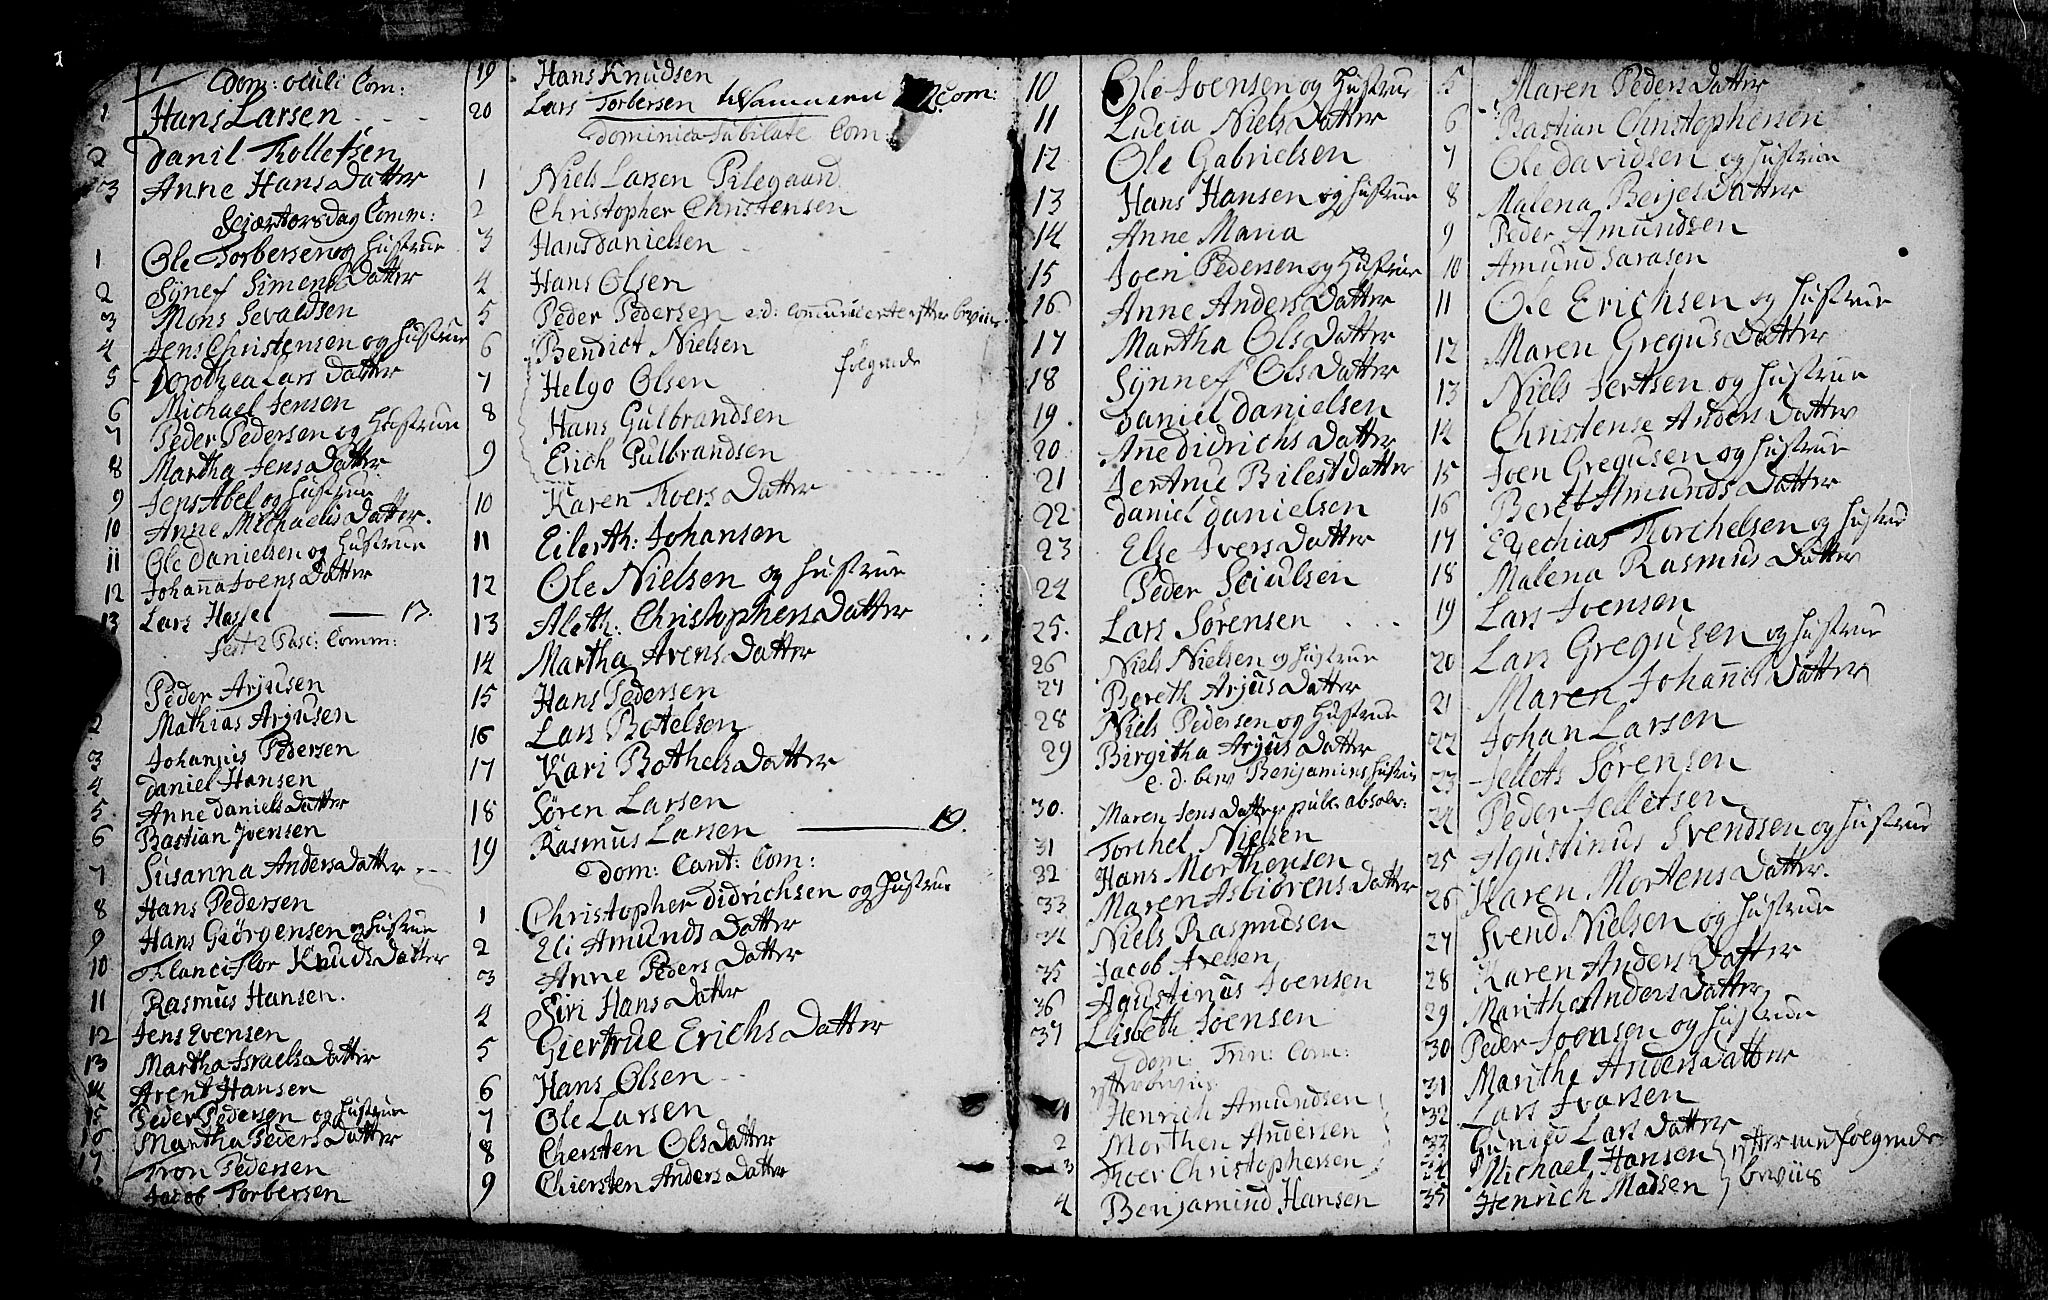 Dom: oculi Com:
1 Hans Larsen
2 Danil Tollefsen
3 Anne Hans Datter
Skiærtorsdag Comm:
1 Ole Torbersen og Hustrue
2 Synef Simens Datter
3 Mons Sevaldsen
4 Jens Christensen og Hustrue
5 Dorothea Lars Datter
6 Michael Jensen
7 Peder Pedersen og Hustrue
8 Martha Jens Datter
9 Jens Abel og Hustrue
10 Anne Michaelis Datter.
11 Ole Danielsen og Hustrue
12 Johanna Joens Datter
13 Lars Hassel — 13.
Fest 2 Pasc: Comm:
Peder Arjusen
2 Mathias Arjusen
3 Johannis Pedersen
4 Daniel Hansen
5 Anne Daniels Datter
6 Bastian Jvensen
7 Susanna Anders Datter
8 Hans Pedersen
9 Hans Giörgensen og Hustrue
10 Knuds Datter
11 Rasmus Hansen.
12 Jens Evensen
13 Martha Israels Datter
14 Arent Hansen
15 Peder Pedersen og Hustrue
16 Martha Peders Datter
17 Tron Pedersen
Jacob Torbersen
19 Hans Knudsen
20 Lars Torbersen Com:
Dominica Jubilate Com:
1 Niels Larsen Pilegaard
2 Christopher Christensen
3 Hans Danielsen
4 Hans Olsen
5 Peder Pedersen e.d: efter beviis
6 Bendict Nielsen
følgende
7 Helgo Olsen
8 Hans Gulbrandsen
9 Erich Gulbrandsen
10 Karen Thoers Datter
11 Eilerth: Johansen
12 Ole Nielsen og Hustrue
13 Aleth: Christophers Datter
14 Martha Arens Datter
15 Hans Pedersen
16 Lars Botelsen
17 Kari Bothels Datter
18 Sören Larsen
19 Rasmus Larsen — 19.
Dom: Cant: Com:
1 Christopher Didrichsen og Hustrue
2 Eli Amunds Datter
3 Anne Peders Datter
4 Siri Hans Datter
5 Giertrue Erichs Datter
6 Hans Olsen
7 Ole Larsen
8 Chersten Ols Datter
9 Chiersten Anders Datter
10 Ole Joensen og Hustrue
11 Lucia Niels Datter
12 Ole Gabrielsen
13 Hans Hansen og Hustrue
14 Anne Maria
15 Joen Pedersen og Hustrue
16 Anne Anders Datter
17 Martha Ols Datter
18 Synnef Ols Datter
19 Daniel Danielsen
20 Anne Didrichs Datter
21 Jertrue Bilest Datter
22 Daniel Danielsen
23 Else Jvers Datter
24 Peder Seiulsen
25. Lars Sörensen
26 Niels Nielsen og Hustrue
27 Bereth Arjus Datter
28 Niels Pedersen og Hustrue
29 Birgitha Arjus Datter
e.d. bev Benjamins Hustrue
30. Maren Jens Datter publ: absolv:
31 Torchel Nielsen
32 Hans Morthensen
33 Maren Asbiörens Datter
34 Niels Rasmusen
35 Jacob Axelsen
36 Agustinus Joensen
37 Lisbeth Joensen
Dom: Trin: Com:
efter beviis
1 Henrich Amundsen
2 Morthen Andersen
3 Thoer Christophersen
4 Benjamind Hansen
5 Maren Peders Datter
6 Bastian Christophersen
7 Ole Davidsen og Hustrue
8 Malena Berjes Datter
9 Peder Amundsen
10 Amund Sarasen
11 Ole Erichsen og Hustrue
12 Maren Gregus Datter
13 Niels Jertsen og Hustrue
14 Christense Anders Datter
15 Joen Gregusen og Hustrue
16 Beret Amunds Datter
17 Ezechias Torchelsen og Hustrue
18 Malena Rasmus Datter
19 Lars Joensen
20 Lars Gregusen og Hustrue
21 Maren Johannis Datter
22 Johan Larsen
23 Jellets Sörensen
24 Peder Jelletsen
25 Agustinus Svendsen og Hustrue
26 Karen Mortens Datter.
27 Svend Nielsen og Hustrue
28 Karen Anders Datter
29 Marithe Anders Datter
30 Peder Joensen og Hustrue
31 Marithe Anders Datter
32 Lars Ivarsen
33 Gunild Lars Datter
34 Michael Hansen efter medfølgende
35 Henrich Madsen beviis